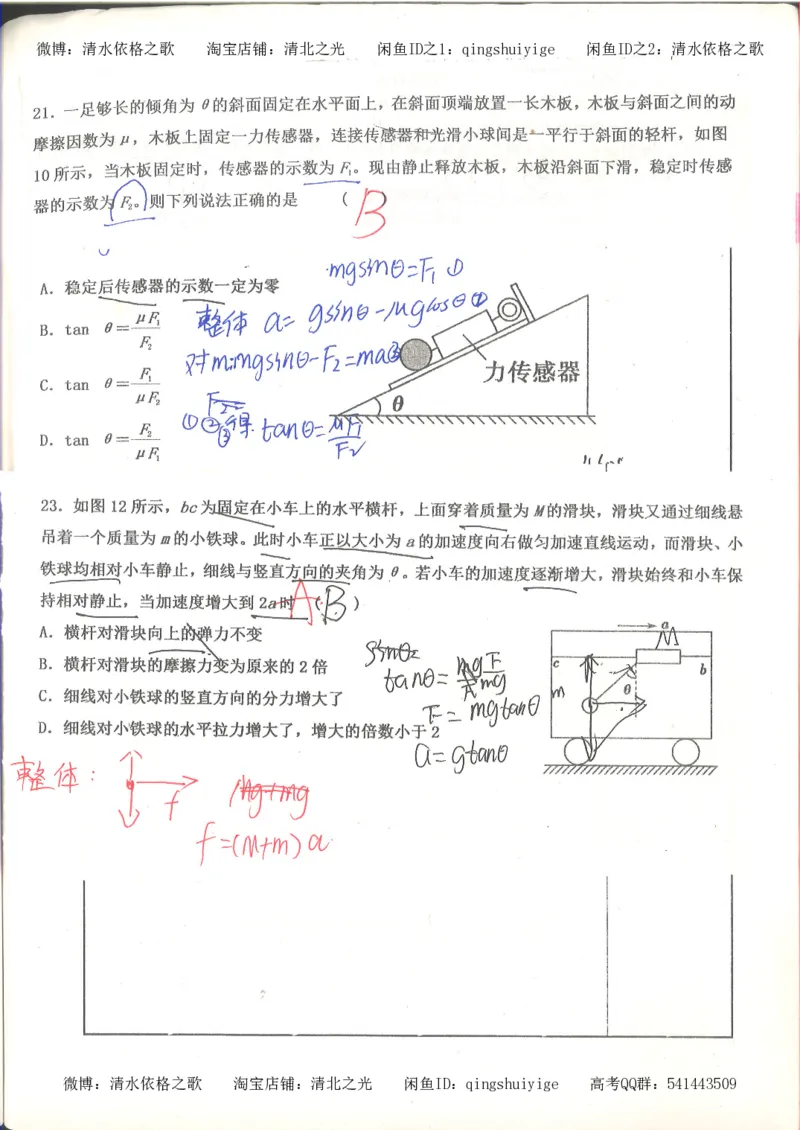 微博：清水依格之歌 淘宝店铺：清北之光 闲鱼ID之1：qingshuiyige 闲鱼ID之2：清水依格之歌
21．一足够长的倾角为 θ的斜面固定在水平面上，在斜面顶端放置一长木板，木板与斜面之间的动
摩擦因数为 μ，木板上固定一力传感器，连接传感器和光滑小球间是一平行于斜面的轻杆，如图
10 所示，当木板固定时，传感器的示数为 F₁。现由静止释放木板，木板沿斜面下滑，稳定时传感
器的示数为 F₂。则下列说法正确的是 （ B ）
A．稳定后传感器的示数一定为零
B．tan θ＝μF₁/F₂
C．tan θ＝F₁/μF₂
D．tan θ＝F₂/μF₁
mgsinθ=F₁ ①
整体 a= gsinθ-μgcosθ ②
对m:mgsinθ-F₂=ma③
①②③得 tanθ=μF₁/F₂
力传感器
θ
23．如图 12 所示，bc 为固定在小车上的水平横杆，上面穿着质量为 M 的滑块，滑块又通过细线悬
吊着一个质量为 m 的小铁球。此时小车正以大小为 a 的加速度向右做匀加速直线运动，而滑块、小
铁球均相对小车静止，细线与竖直方向的夹角为 θ。若小车的加速度逐渐增大，滑块始终和小车保
持相对静止，当加速度增大到 2a 时 A（ B ）
A．横杆对滑块向上的弹力不变
B．横杆对滑块的摩擦力变为原来的 2 倍
C．细线对小铁球的竖直方向的分力增大了
D．细线对小铁球的水平拉力增大了，增大的倍数小于 2
sinθ=
tanθ=F/mg
F=mgtanθ
a=gtanθ
a
M
c
b
m
θ
整体：
f
Mg+mg
f=(M+m)a
微博：清水依格之歌 淘宝店铺：清北之光 闲鱼ID：qingshuiyige 高考QQ群：541443509